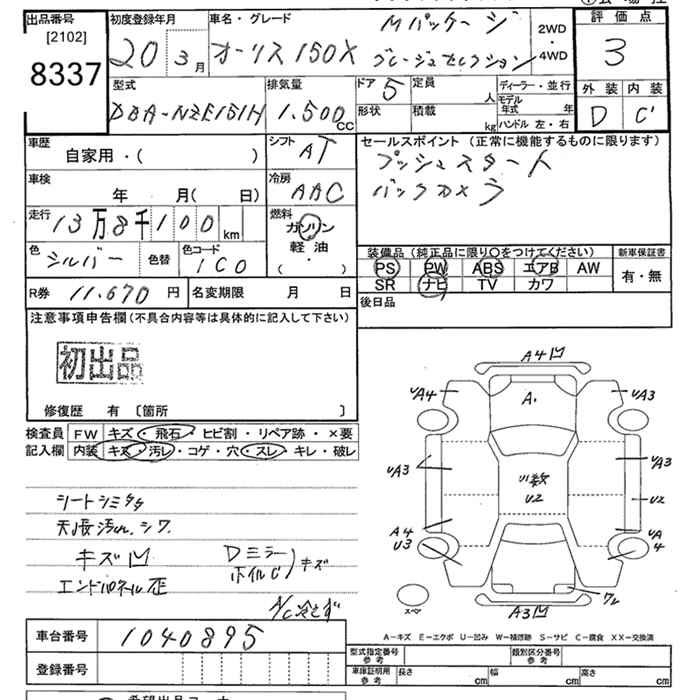 出品番号 [2102] 8337
初度登録年月 20年 3月
車名・グレード オーリス 150X Mパッケージ
2WD・4WD
評価点 3
外装 D 内装 C'
型式 DBA-NZE151H
排気量 1.500 CC
ドア 5
定員 人
形状
積載 kg
ディーラー・並行
モデル年式 年
ハンドル 左・右
車歴 自家用・( )
シフト AT
セールスポイント (正常に機能するものに限ります)
プッシュスタート
バックカメラ
車検 年 月( 日)
冷房 AAC
走行 13万8千100 km
燃料 ガソリン 軽油 ・ ( )
色 シルバー 色替
色コード 1C0
装備品 (純正品に限り○をつけてください)
新車保証書
PS PW ABS エアB AW
有・無
SR ナビ TV カワ
R券 11.670 円
名変期限 月 日
後日品
注意事項申告欄 (不具合内容等は具体的に記入して下さい)
初出品
修復歴 有 〔箇所 〕
検査員 FW キズ・飛石・ヒビ割・リペア跡・×要
記入欄 内装 キズ・汚レ・コゲ・穴・スレ・キレ・破レ
A4凹
UA4 A1 UA3
UA3 UA3
U2 U2
A4 UA
U3 4
スペ
ワレ
A3凹
シートシミ
天張汚れ シワ
キズ凹 Dミラー
ホイルC キズ
エンドパネル歪
A/C冷えず
A－キズ E－エクボ U－凹み W－補修跡 S－サビ C－腐食 XX－交換済
車台番号 1040895
登録番号
型式指定番号 参考
類別区分番号 参考
車庫証明用 参考 長さ cm 幅 cm 高さ cm